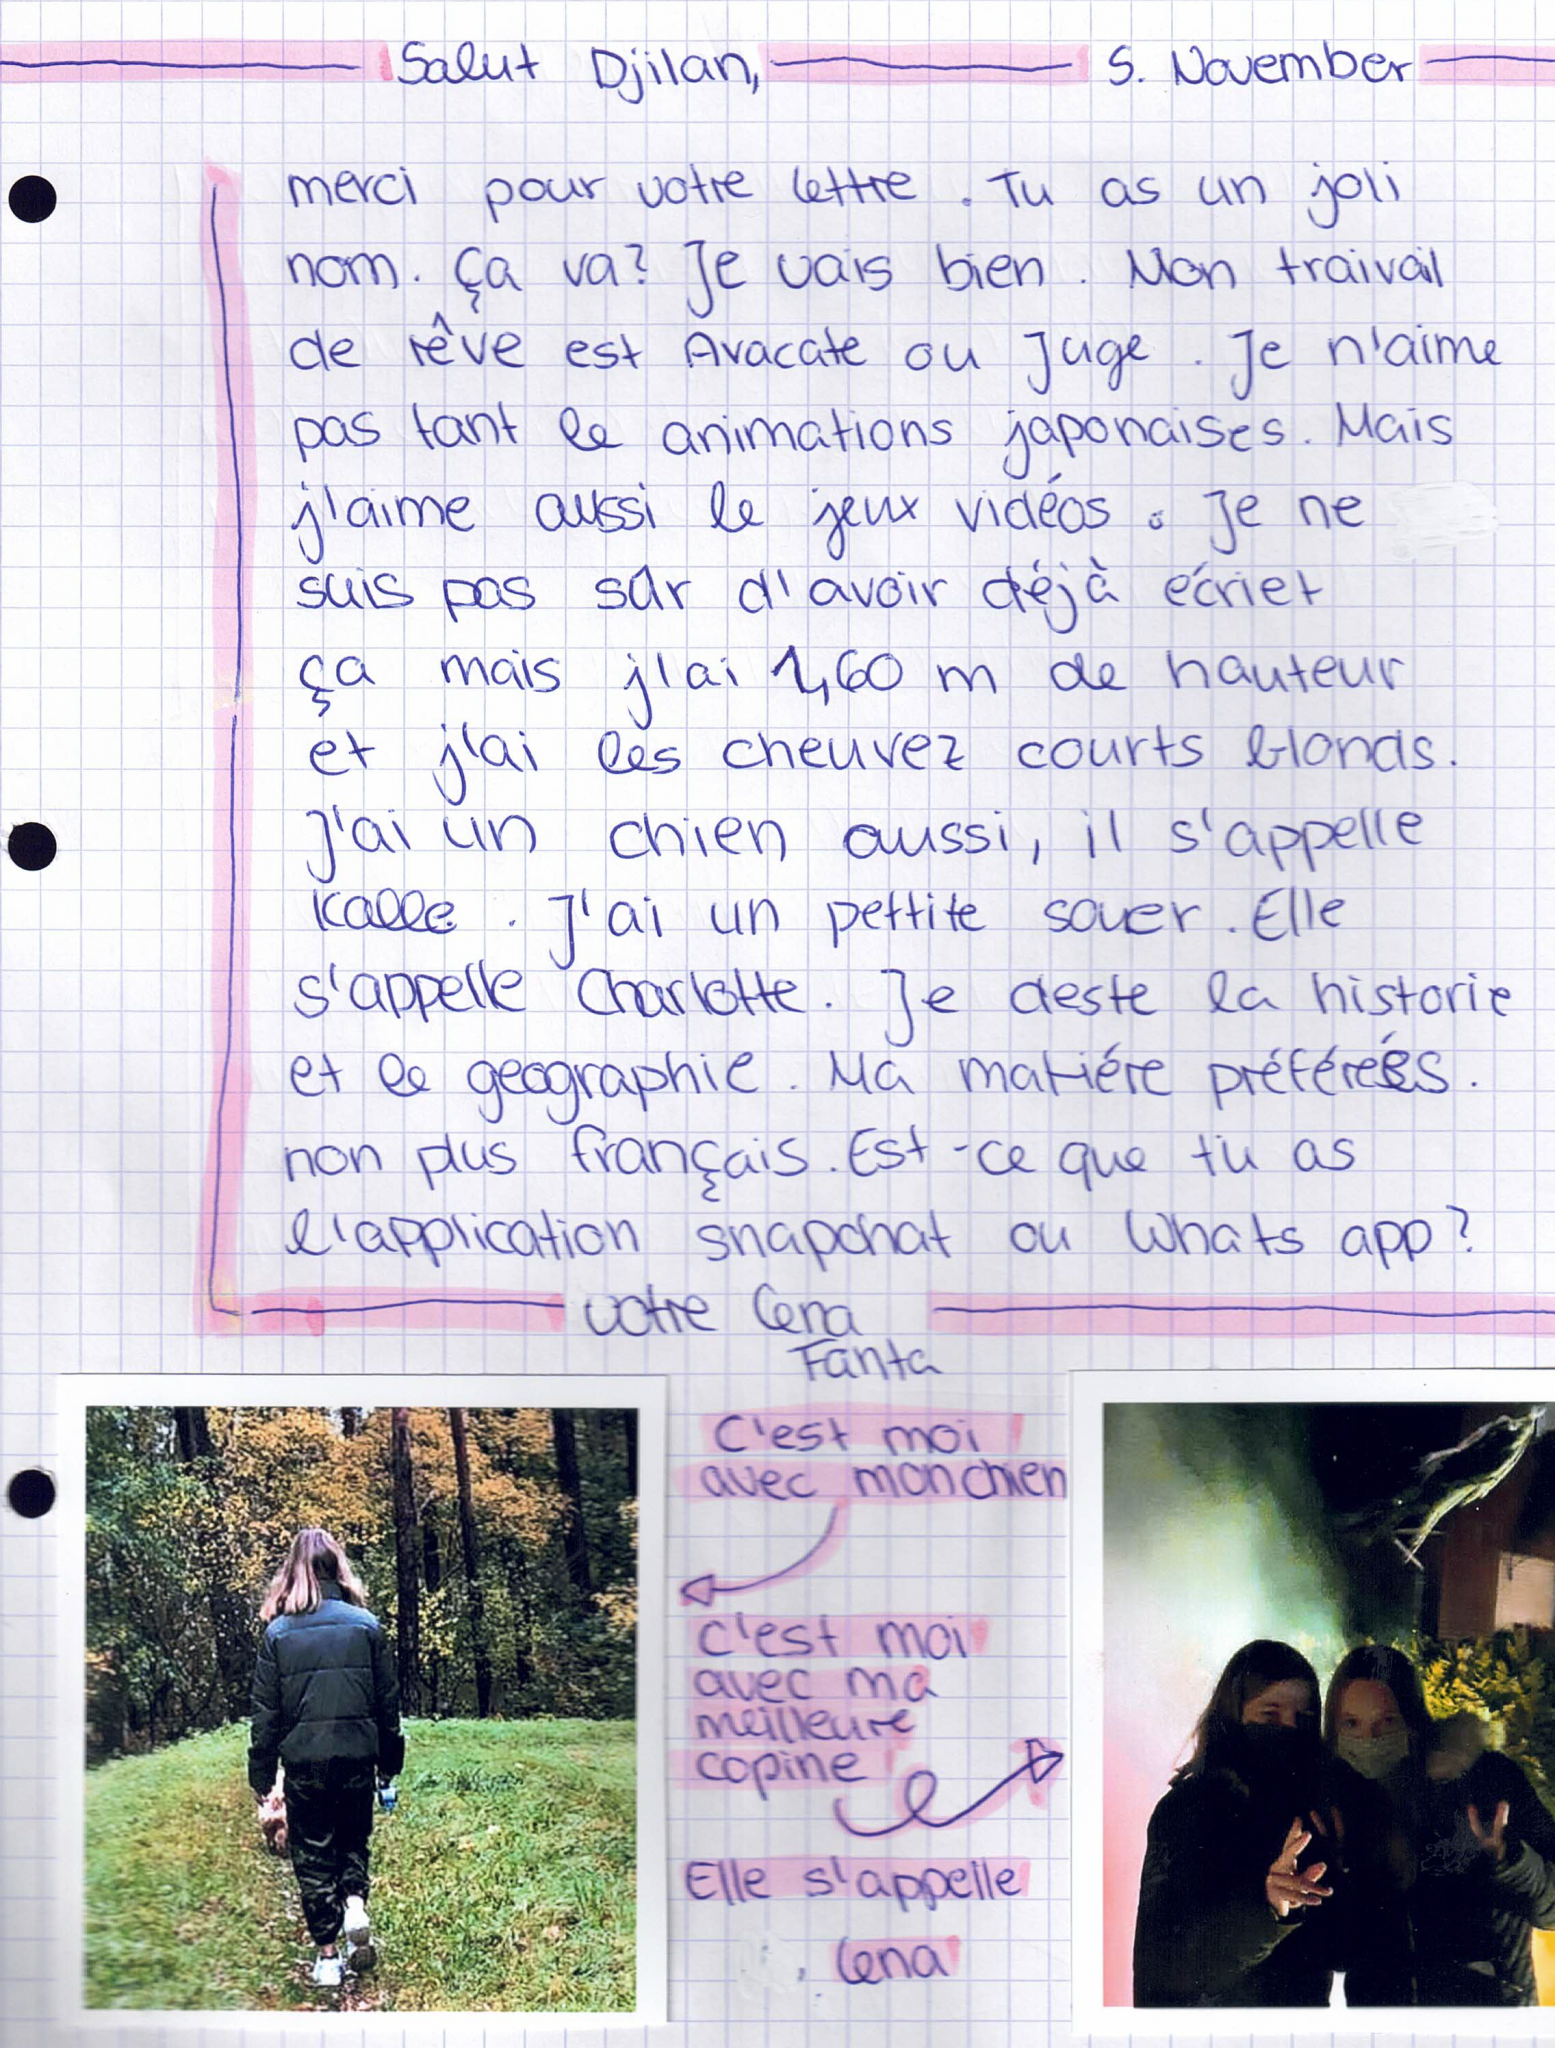 Salut Djilan, 5. November
merci pour votre lettre. Tu as un joli
nom. Ça va? Je vais bien. Mon traivail
de rêve est Avacate ou Juge. Je n'aime
pas tant le animations japonaises. Mais
j'aime aussi le jeux vidéos. Je ne
suis pas sûr d'avoir déjà écriet
ça mais j'ai 1,60 m de hauteur
et j'ai les cheuvez courts blonds.
J'ai un chien aussi, il s'appelle
Kalle. J'ai un pettite souer. Elle
s'appelle Charlotte. Je deste la historie
et le geographie. Ma matiére préférées.
non plus français. Est-ce que tu as
l'application snapchat ou Whats app?
votre Lena
Fanta
C'est moi
avec mon chien
C'est moi
avec ma
meilleure
copine
Elle s'appelle
Lena